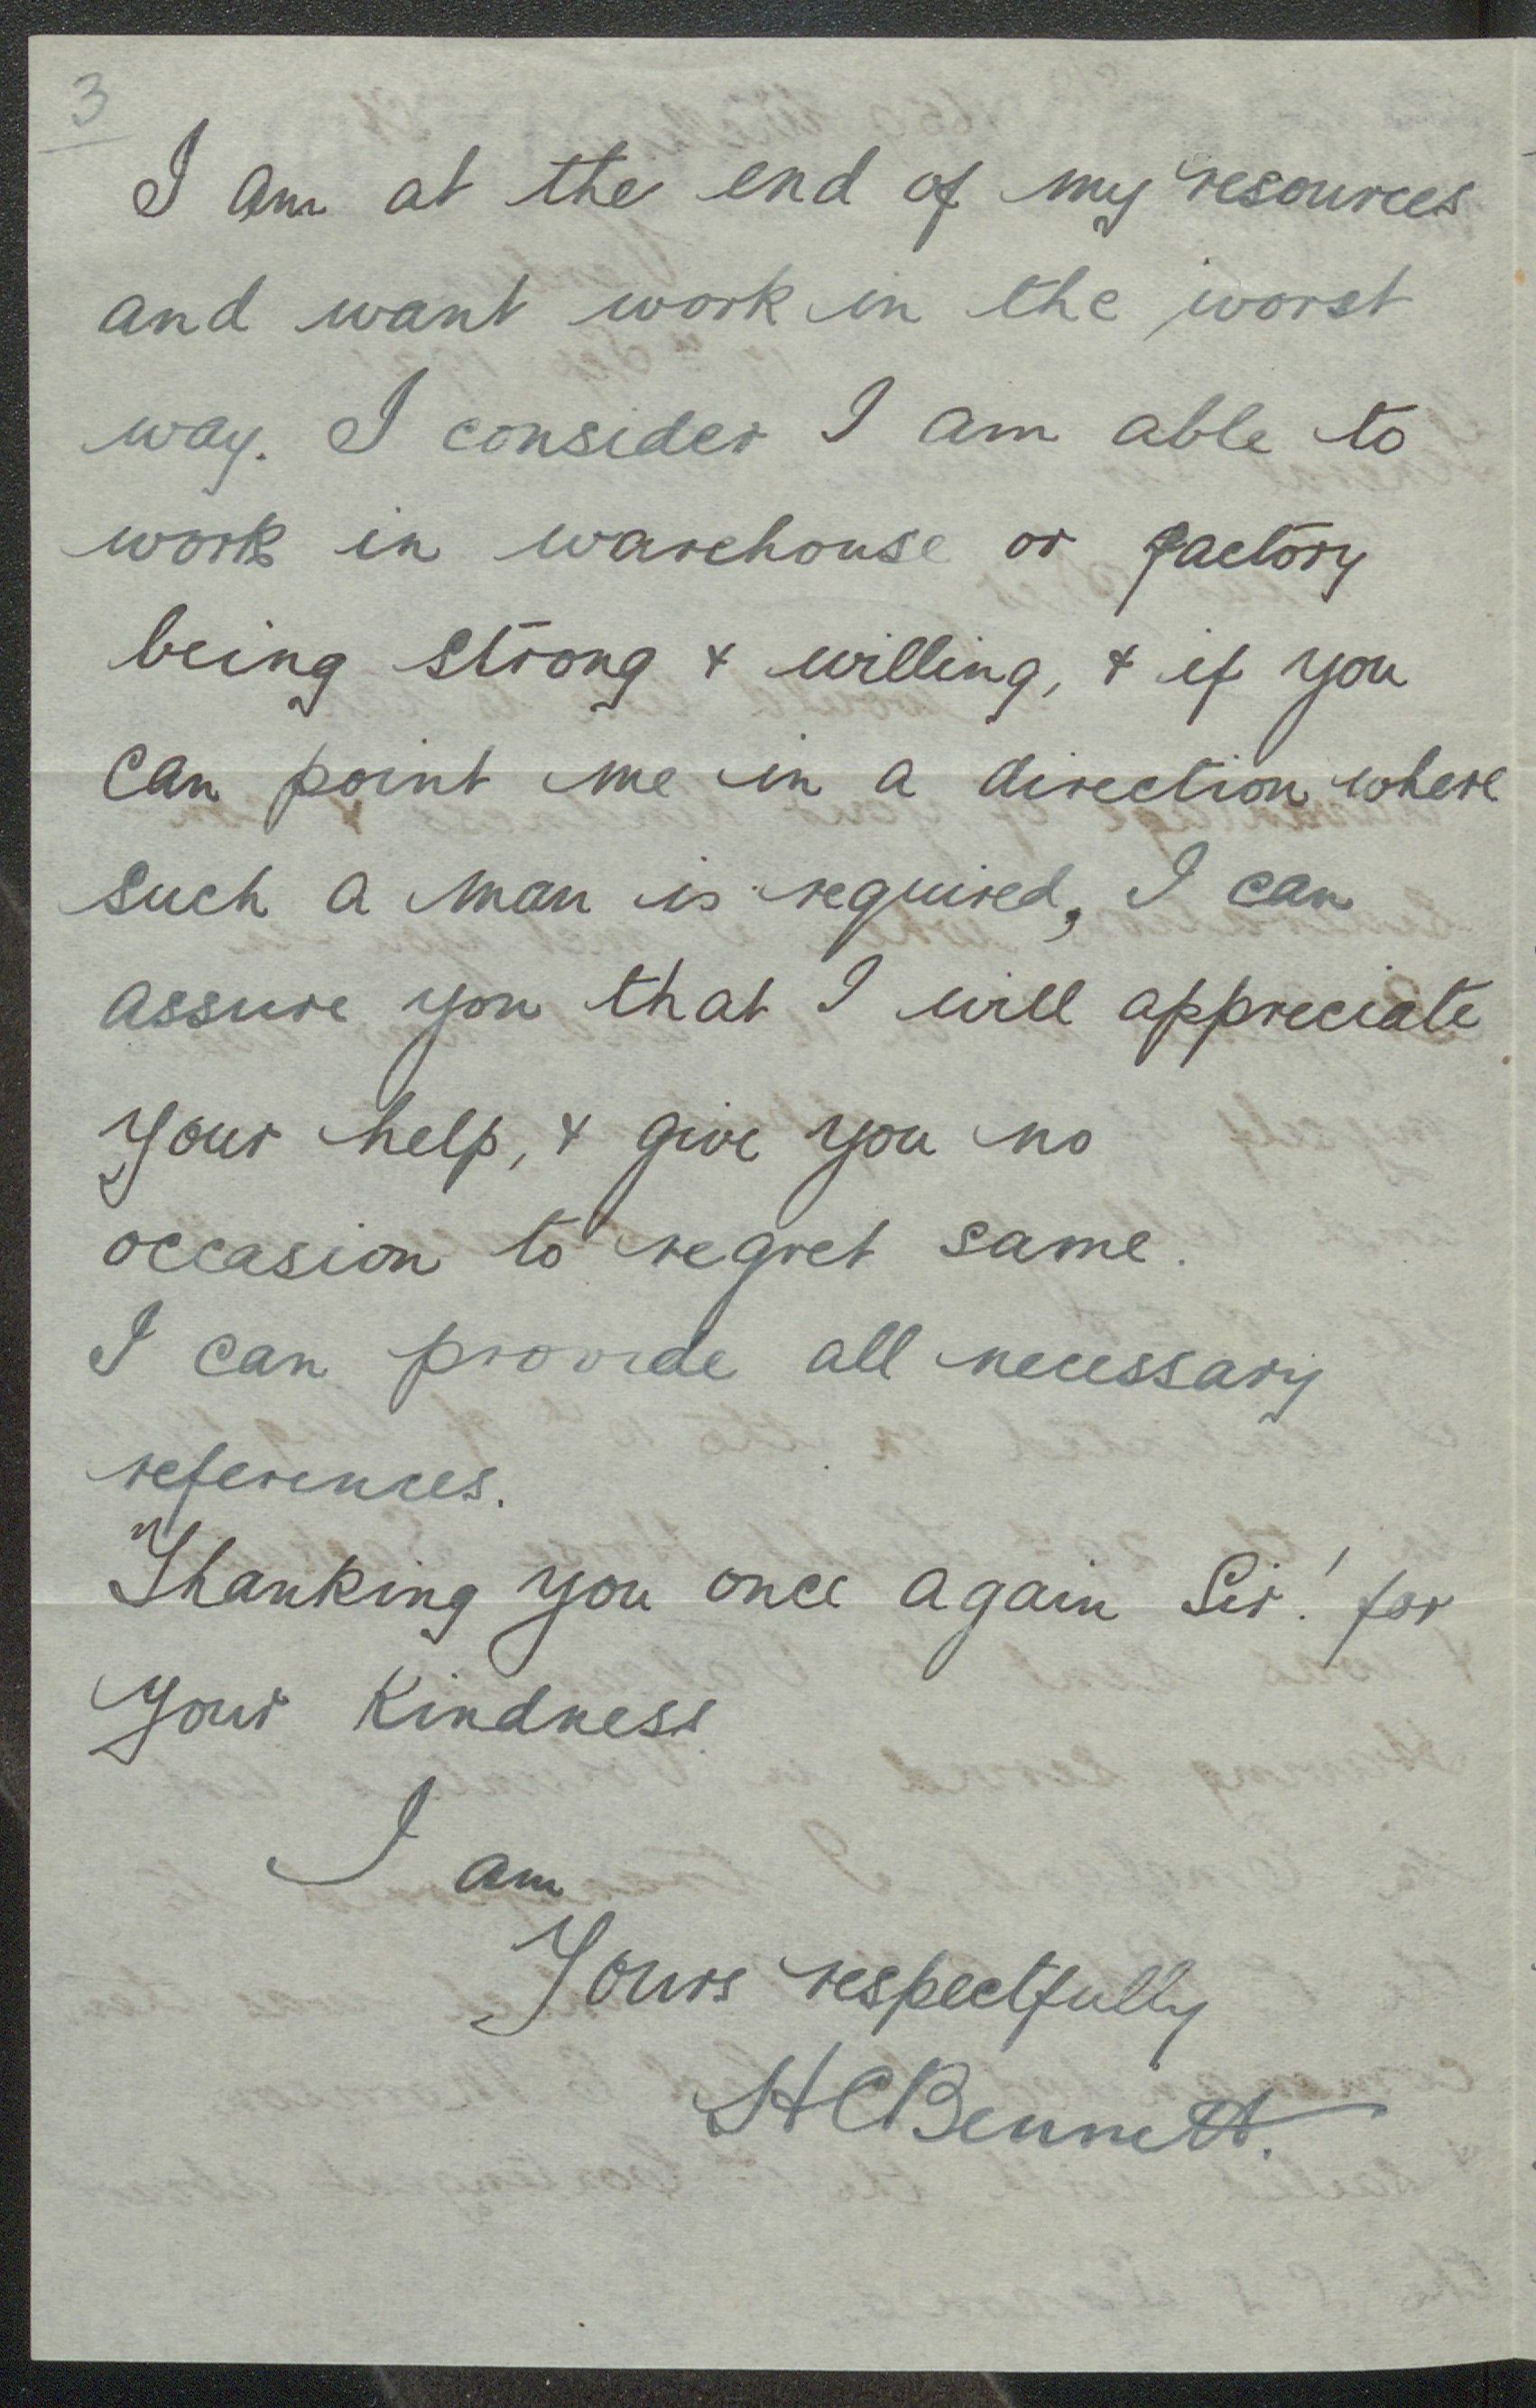 3
I am at the end of my resources
and want work in the worst
way. I consider I am able to
work in warehouse or factory
being strong & willing, & if you
can point me in a direction where
such a man is required, I can
assure you that I will appreciate
your help, & give you no
occasion to regret same.
I can provide all necessary
references.
Thanking you once again Sir! for
your kindness
I am
Yours respectfully
HCBennett.